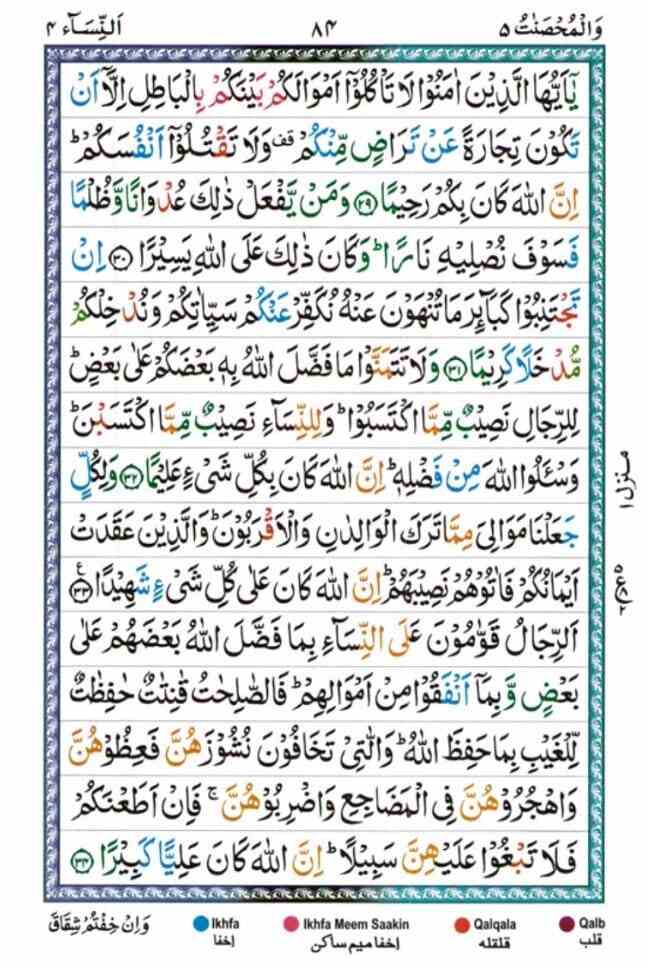 وَالْمُحْصَنٰتُ ٥ ٨٤ اَلنِّسَآء ٤
يٰۤاَيُّهَا الَّذِيْنَ اٰمَنُوْا لَا تَاْكُلُوْۤا اَمْوَالَكُمْ بَيْنَكُمْ بِالْبَاطِلِ اِلَّاۤ اَنْ
تَكُوْنَ تِجَارَةً عَنْ تَرَاضٍ مِّنْكُمْ قف وَلَا تَقْتُلُوْۤا اَنْفُسَكُمْ ؕ
اِنَّ اللّٰهَ كَانَ بِكُمْ رَحِيْمًا ﴿٢٩﴾ وَمَنْ يَّفْعَلْ ذٰلِكَ عُدْوَانًا وَّظُلْمًا
فَسَوْفَ نُصْلِيْهِ نَارًا ؕ وَكَانَ ذٰلِكَ عَلَى اللّٰهِ يَسِيْرًا ﴿٣٠﴾ اِنْ
تَجْتَنِبُوْا كَبَآئِرَ مَا تُنْهَوْنَ عَنْهُ نُكَفِّرْ عَنْكُمْ سَيِّاٰتِكُمْ وَنُدْخِلْكُمْ
مُّدْخَلًا كَرِيْمًا ﴿٣١﴾ وَلَا تَتَمَنَّوْا مَا فَضَّلَ اللّٰهُ بِهٖ بَعْضَكُمْ عَلٰى بَعْضٍ ؕ
لِلرِّجَالِ نَصِيْبٌ مِّمَّا اكْتَسَبُوْا ؕ وَلِلنِّسَآءِ نَصِيْبٌ مِّمَّا اكْتَسَبْنَ ؕ
وَسْـَٔلُوا اللّٰهَ مِنْ فَضْلِهٖ ؕ اِنَّ اللّٰهَ كَانَ بِكُلِّ شَيْءٍ عَلِيْمًا ﴿٣٢﴾ وَلِكُلٍّ
جَعَلْنَا مَوَالِيَ مِمَّا تَرَكَ الْوَالِدٰنِ وَالْاَقْرَبُوْنَ ؕ وَالَّذِيْنَ عَقَدَتْ
اَيْمَانُكُمْ فَاٰتُوْهُمْ نَصِيْبَهُمْ ؕ اِنَّ اللّٰهَ كَانَ عَلٰى كُلِّ شَيْءٍ شَهِيْدًا ﴿٣٣﴾ ع
اَلرِّجَالُ قَوّٰمُوْنَ عَلَى النِّسَآءِ بِمَا فَضَّلَ اللّٰهُ بَعْضَهُمْ عَلٰى
بَعْضٍ وَّبِمَاۤ اَنْفَقُوْا مِنْ اَمْوَالِهِمْ ؕ فَالصّٰلِحٰتُ قٰنِتٰتٌ حٰفِظٰتٌ
لِّلْغَيْبِ بِمَا حَفِظَ اللّٰهُ ؕ وَالّٰتِيْ تَخَافُوْنَ نُشُوْزَهُنَّ فَعِظُوْهُنَّ
وَاهْجُرُوْهُنَّ فِي الْمَضَاجِعِ وَاضْرِبُوْهُنَّ ۚ فَاِنْ اَطَعْنَكُمْ
فَلَا تَبْغُوْا عَلَيْهِنَّ سَبِيْلًا ؕ اِنَّ اللّٰهَ كَانَ عَلِيًّا كَبِيْرًا ﴿٣٤﴾
منزل ١
وَاِنْ خِفْتُمْ شِقَاقَ
Ikhfa
اخفا
Ikhfa Meem Saakin
اخفا میم ساکن
Qalqala
قلقله
Qalb
قلب